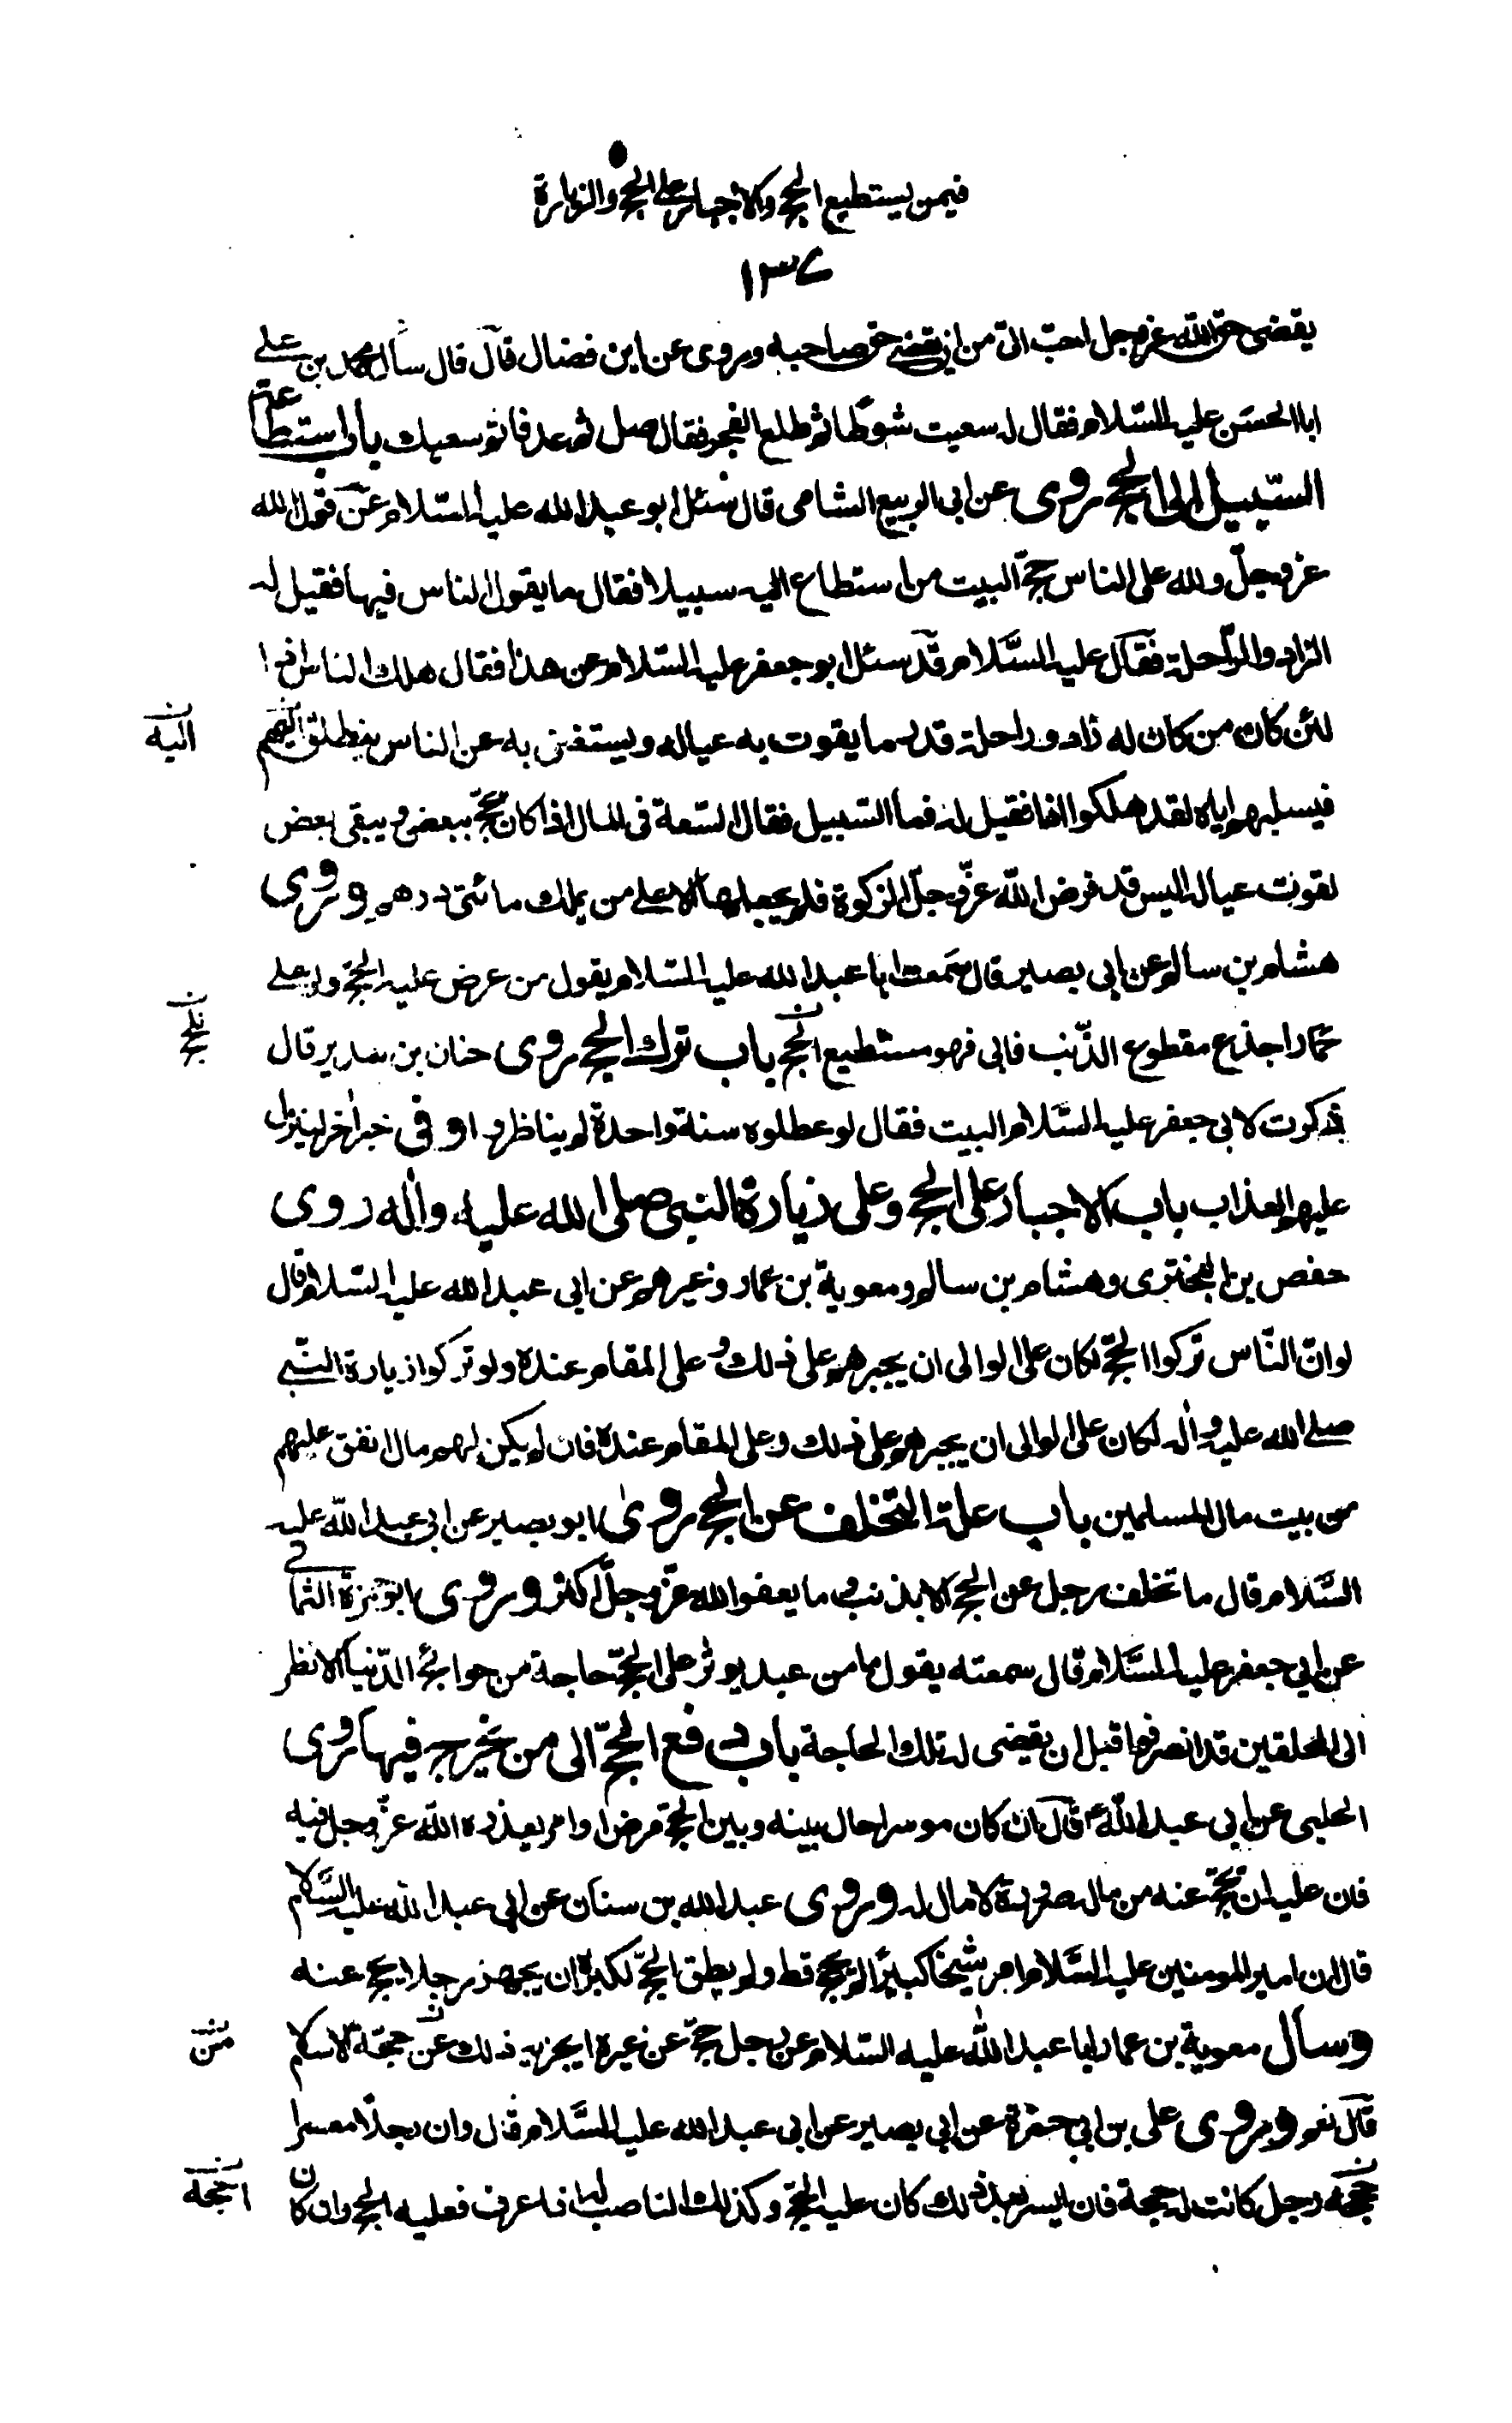 فيمن يستطيع الحج والاجبار على الحج والزيارة
١٣٧
يقضى حق الله عز وجل احب الىّ من ان يقضى حق صاحبه وروى عن ابن فضال قال قال سأل محمد بن على
ابا الحسَن عليه السّلام فقال له سعيت شوطًا ثم طلع الفجر فقال صل ثم عد فاتم سعيك باب استطاعة
السّبيل الى الحج روى عن ابى الربيع الشامى قال سئل ابو عبد الله عليه السّلام عن قول الله
عز وجلّ ولله على الناس حجّ البيت من استطاع اليه سبيلا فقال ما يقول الناس فيها فقيل له
الزاد والرّاحلة فقال عليه السَّلام قد سئل ابو جعفر عليه السّلام عن هذا فقال هلك الناس اذا
لئن كان من كان له زاد وراحلة قدر ما يقوت به عياله ويستغنى به عن الناس ينطلق اليهم
اليه
فيسلبهم اياه لقد هلكوا اذا فقيل له فما السّبيل فقال السّعة فى المال اذا كان يحجّ ببعض ويبقى بعض
لقوت عياله اليس قد فرض الله عزّ وجلّ الزكوة فلم يجعلها الا على من يملك مائتى درهم وروى
هشام بن سالم عن ابى بصير قال سَمعت ابا عبد الله عليه السّلام يقول من عرض عليه الحجّ ولو على
حمار اجذع مقطوع الذّنب فابى فهو مستطيع الحجّ باب ترك الحج روى حنان بن سدير قال
للحج
ذكرت لابى جعفر عليه السَّلام البيت فقال لو عطلوه سنة واحدة لم يناظروا وفى خبر اٰخر لينزل
عليهم العذاب باب الاجبار على الحج وعلى زيارة النبى صلى الله عليه واٰله روى
حفص بن البخترى وهشام بن سالم ومعوية بن عمار وغيرهم عن ابى عبد الله عليه السّلام قال
لو انّ النّاس تركوا الحجّ لكان على الوالى ان يجبرهم على ذلك وعلى المقام عنده ولو تركوا زيارة النّبى
صلى الله عليه واٰله لكان على الوالى ان يجبرهم على ذلك وعلى المقام عنده فان لم يكن لهم مال انفق عليهم
من بيت مال المسلمين باب علة التخلف عن الحج روىٰ ابو بصير عن ابى عبد الله عليه
السَّلام قال ما تخلف رجل عن الحج الا بذنب وما يعفو الله عزّ وجلّ اكثر وروى ابو حمزة الثمالى
عن ابى جعفر عليه السَّلام قال سمعته يقول ما من عبد يوثر على الحجّ حاجة من حوائج الدّنيا الا نظر
الى المحلقين قد انصرفوا قبل ان يقضى له تلك الحاجة باب دفع الحجّ الى من يخرج فيها روى
الحلبى عن ابى عبد اللهؑ قال ان كان موسرا حال بينه وبين الحجّ مرض او امر يعذره الله عزّ وجل فيه
فان عليه ان يحجّ عنه من ماله صرورة لا مال له وروى عبد الله بن سنان عن ابى عبد الله عليه السَّلام
قال ان امير المومنين عليه السَّلام امر شيخًا كبيرًا لم يحج قط ولم يطق الحجّ لكبره ان يجهز رجلا يحج عنه
وسأل معوية بن عمار ابا عبد اللهٰ عليه السّلام عن رجل حجّ عن غيره ايجزيه ذلك عن حجّة الاسلام
من
قال نعم وروى على بن ابى حمزة عن ابى بصير عن ابى عبد الله عليه السَّلام قال وان رجلاً معسرا
حجه رجل كانت له حجة فان ايسر بعد ذلك كان عليه الحجّ وكذلك الناصب اذا عرف فعليه الحج وان كان
احجه